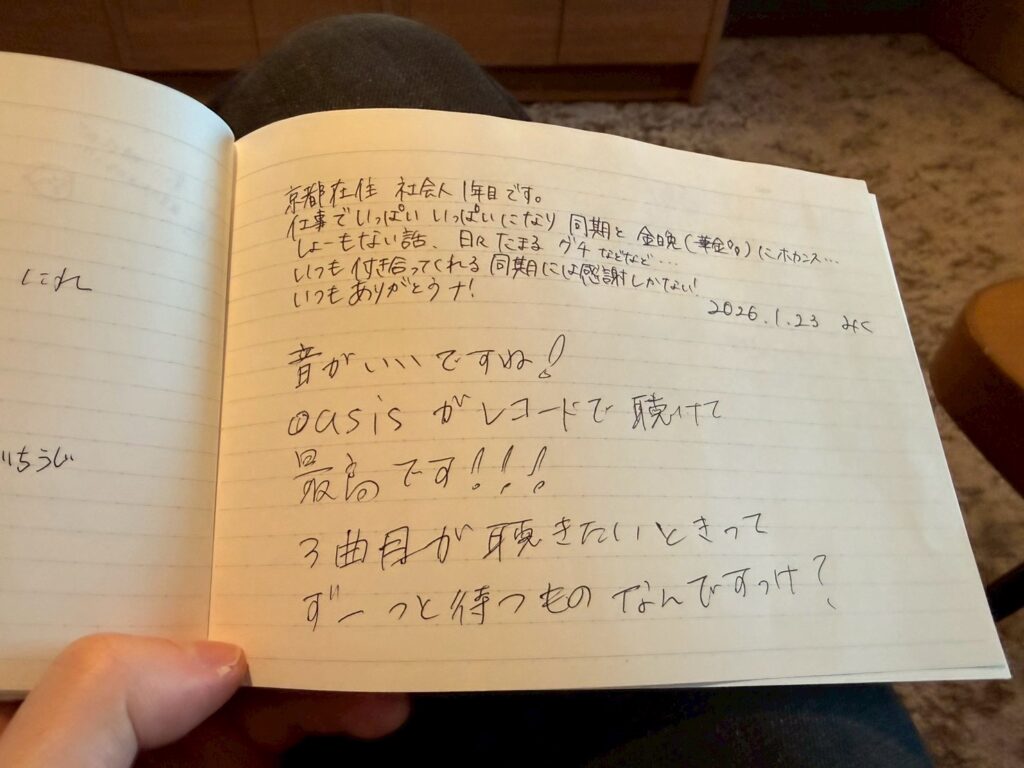 にれ
いちうじ
京都在住 社会人1年目です。
仕事でいっぱいいっぱいになり 同期と 金晩(華金°。)にホカンス…
しょーもない話、日々たまる グチなどなど…
いつも付き合ってくれる 同期には感謝しかない!
いつもありがとうナ!
2026.1.23 みく
音がいいですね!
oasis がレコードで 聴けて
最高です!!!
3曲目が 聴きたいときって
ずーっと待つものなんですっけ?